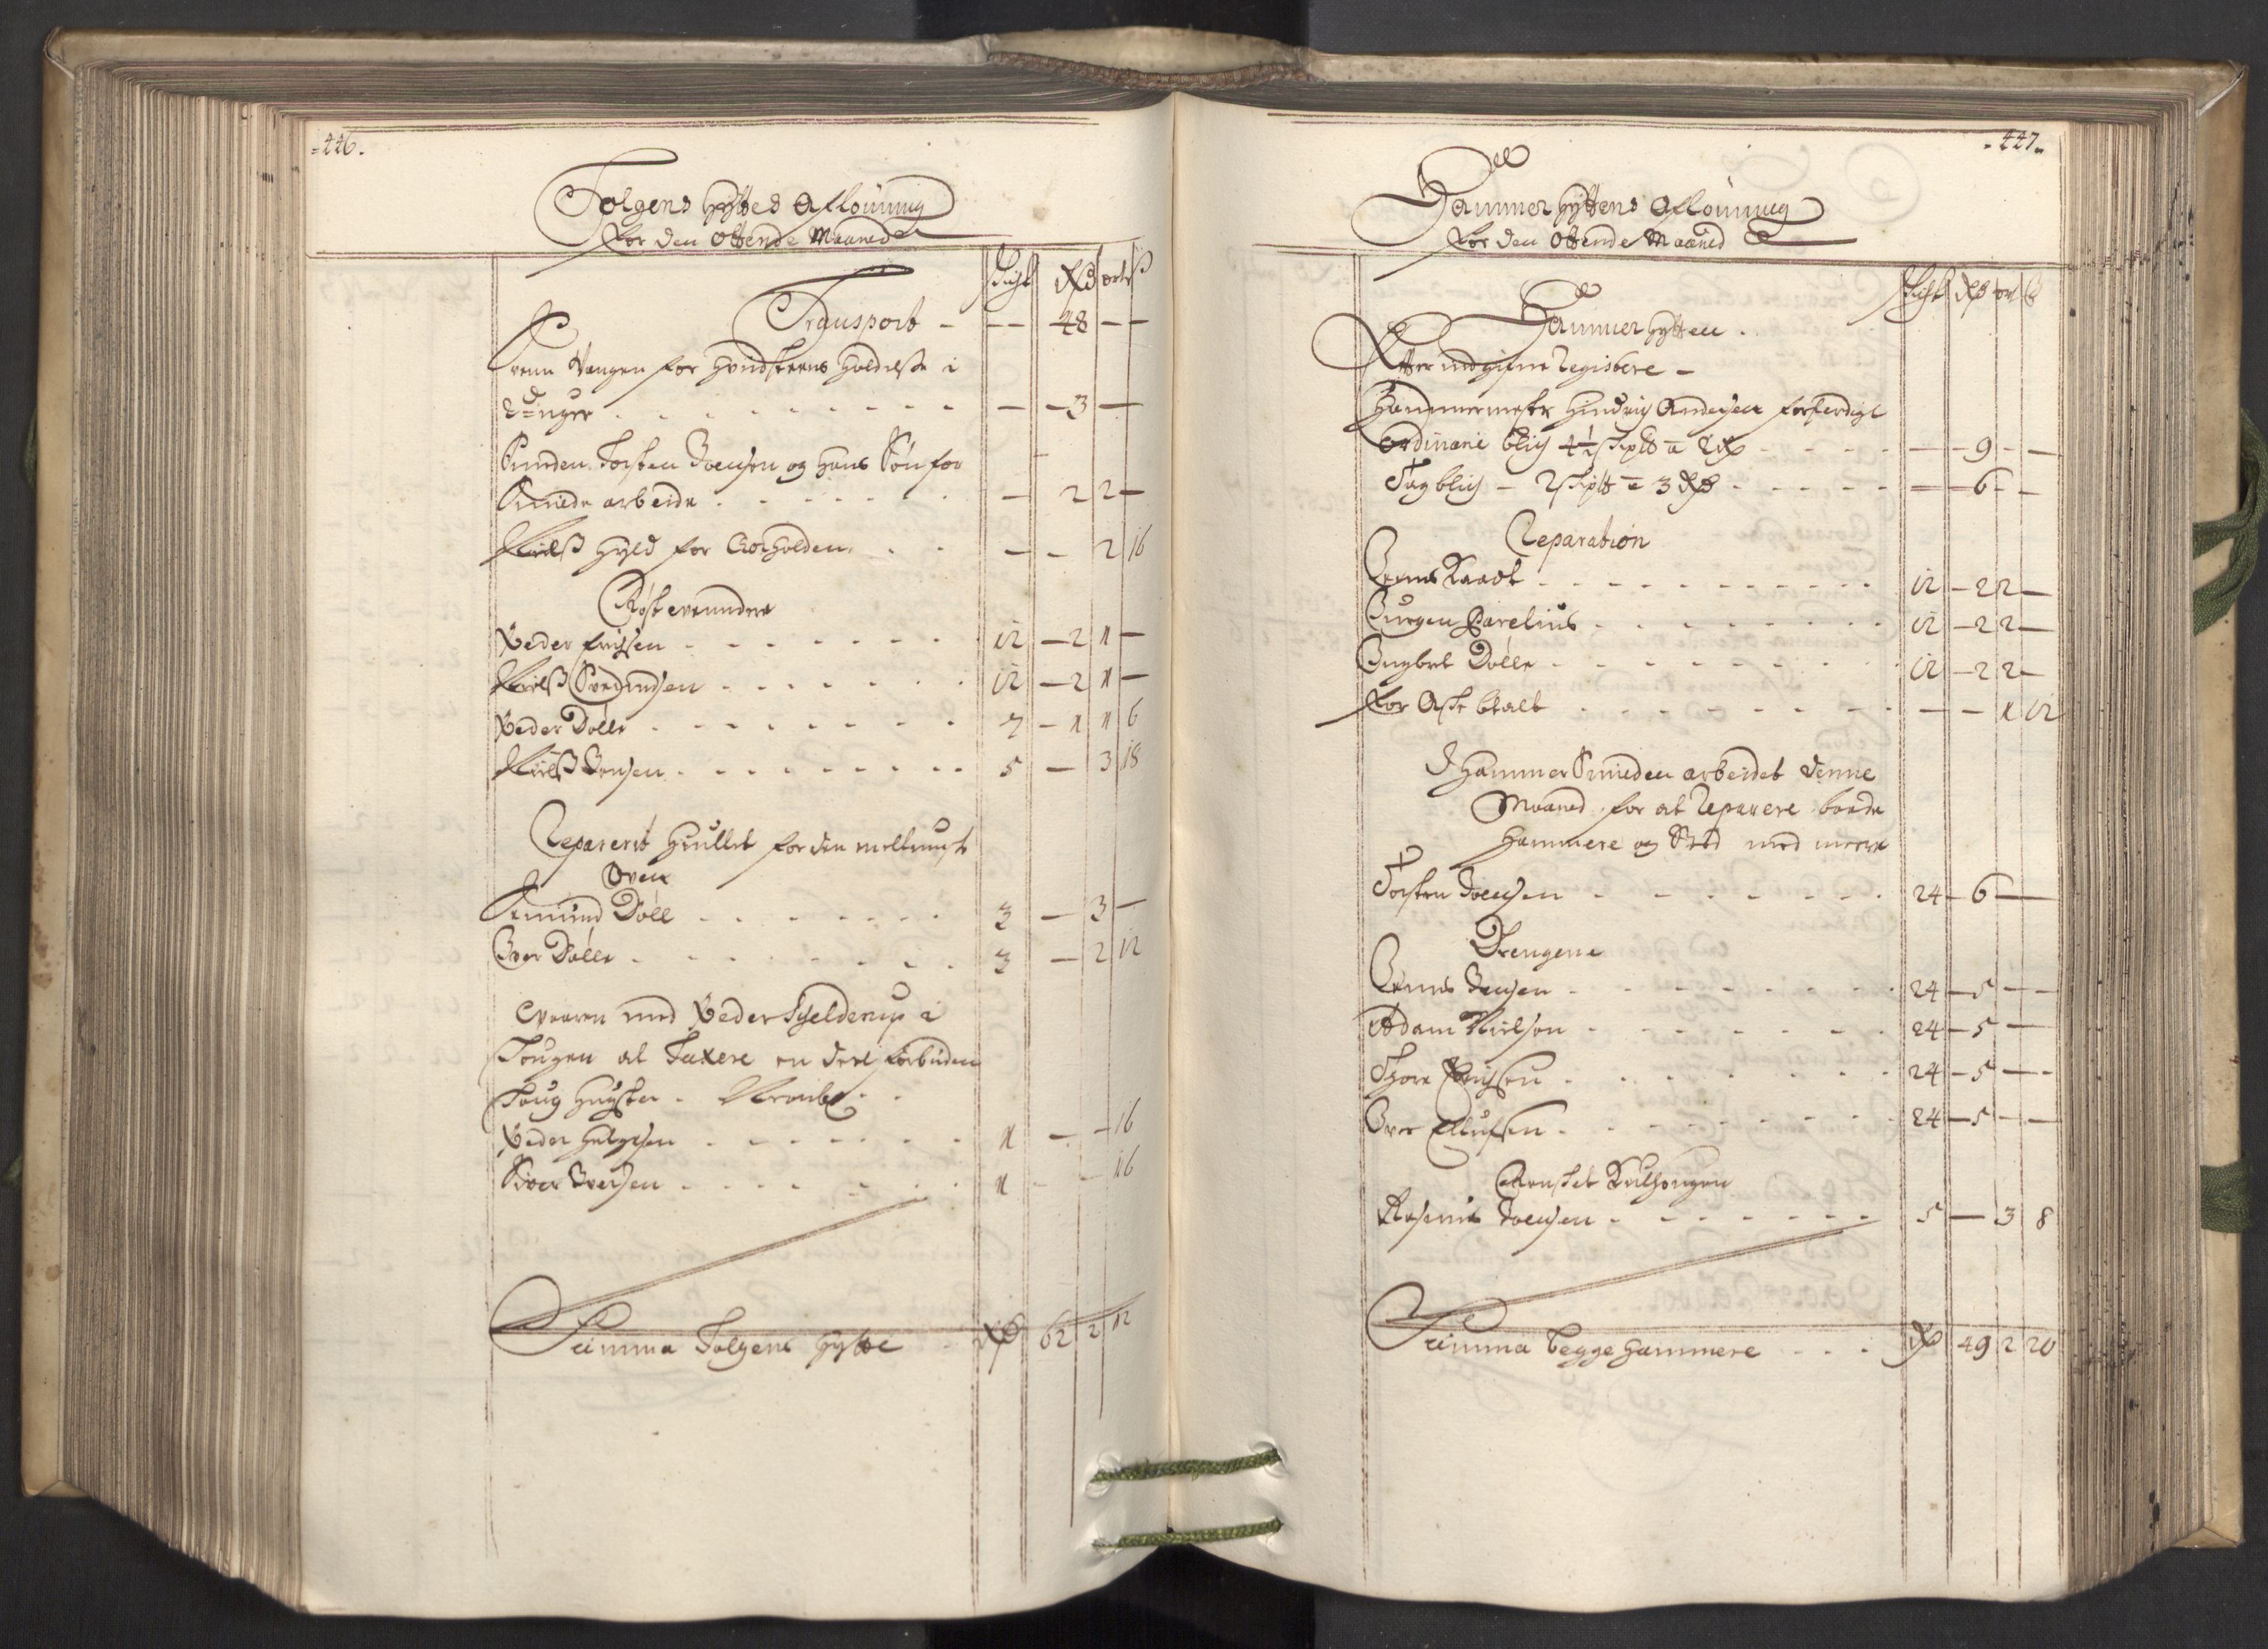 =446.
Tolgens Hÿttes Aflönning
for den Ottende Maaned
Skicht Rd ort ß
Transport - -- 48 - -
Svenn Vangen for Hundsteens Holdelse i
2de uger - 3 -
Smeden Torsten Joensen og hans Sön for
Smede arbeide - 2 2 -
Nielß Hÿld for Kolholden - - 2 16
Röstevendere
Peder Erichsen 12 - 2 1 -
Nielß Svendsen 12 - 2 1 -
Peder Dölle 7 - 1 1 6
Nielß Jensen 5 - 3 18
Reparerit Hiullet for den mellemste
Oven
Amund Döll 3 - 3 -
Iver Dölle 3 - 2 12
Waaren med Peder Hielderup i
Skougen at Taxere en deel forbuden
Skoug
Peder Helgesen 1 - - 16
Siver Iversen 1 - - 16
Summa Tolgens Hÿtte Rd 62 2 12
- 447 -
Hammer Hÿttens Aflönning
for den Ottende Maaned
Skicht Rd ort ß
Hammer Hÿtten.
Efter indgifne Registere -
Hammermester Hindrich Andersen forferdigt
Ordinarie blich 4½ Skipd a 2 Rd - - 9 - -
Tag blich - 2 Skipd a 3 Rd - - 6 - -
Reparation
Jens Kaadt 12 - 2 2 -
Jürgen Parelius 12 - 2 2 -
Ingbret Dölle 12 - 2 2 -
for Aske betalt - - 1 12
Hammer Smeden arbeidet denne
Maaned for at Reparere baade
Hammere og Sted med meere
Torsten Joensen 24 - 6 -
Drengene
Jens Jensen 24 - 5 - -
Adam Nielsen 24 - 5 -
Thore Erichsen 24 - 5 - -
Iver Ellufsen 24 - 5 - -
Rensket Kulhougen
Rasmus Joensen 5 - 3 8
Summa begge Hammere Rd 49 2 20